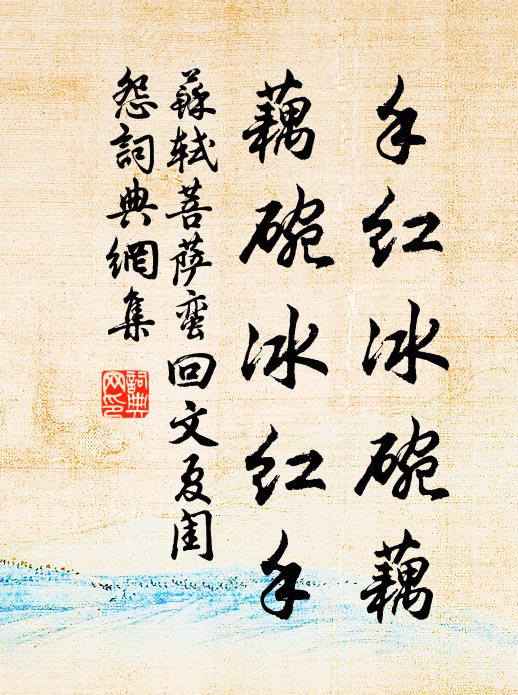 手红冰碗藕
藕碗冰红手
蘇轼菩萨蛮回文夏闺
怨詞典網集
詞典
网印